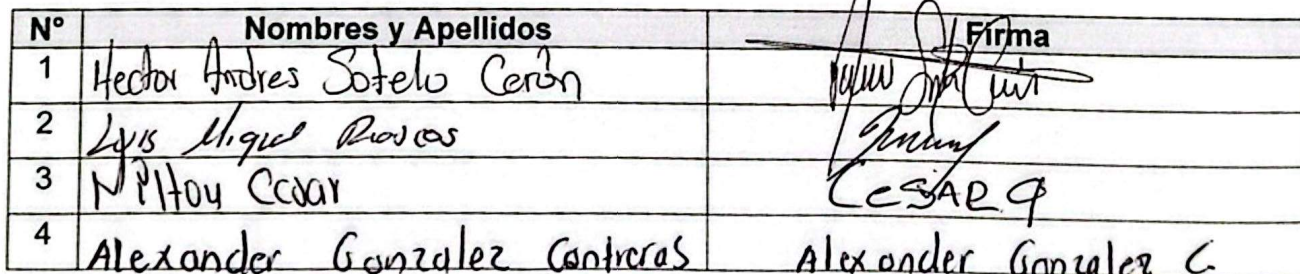 Nº Nombres y Apellidos Firma
1 Hector Andres Sotelo Cerón
2 Luis Miguel Riascos
3 Milton Cesar CeSAR
4 Alexander Gonzalez Contreras Alexander Gonzalez C.